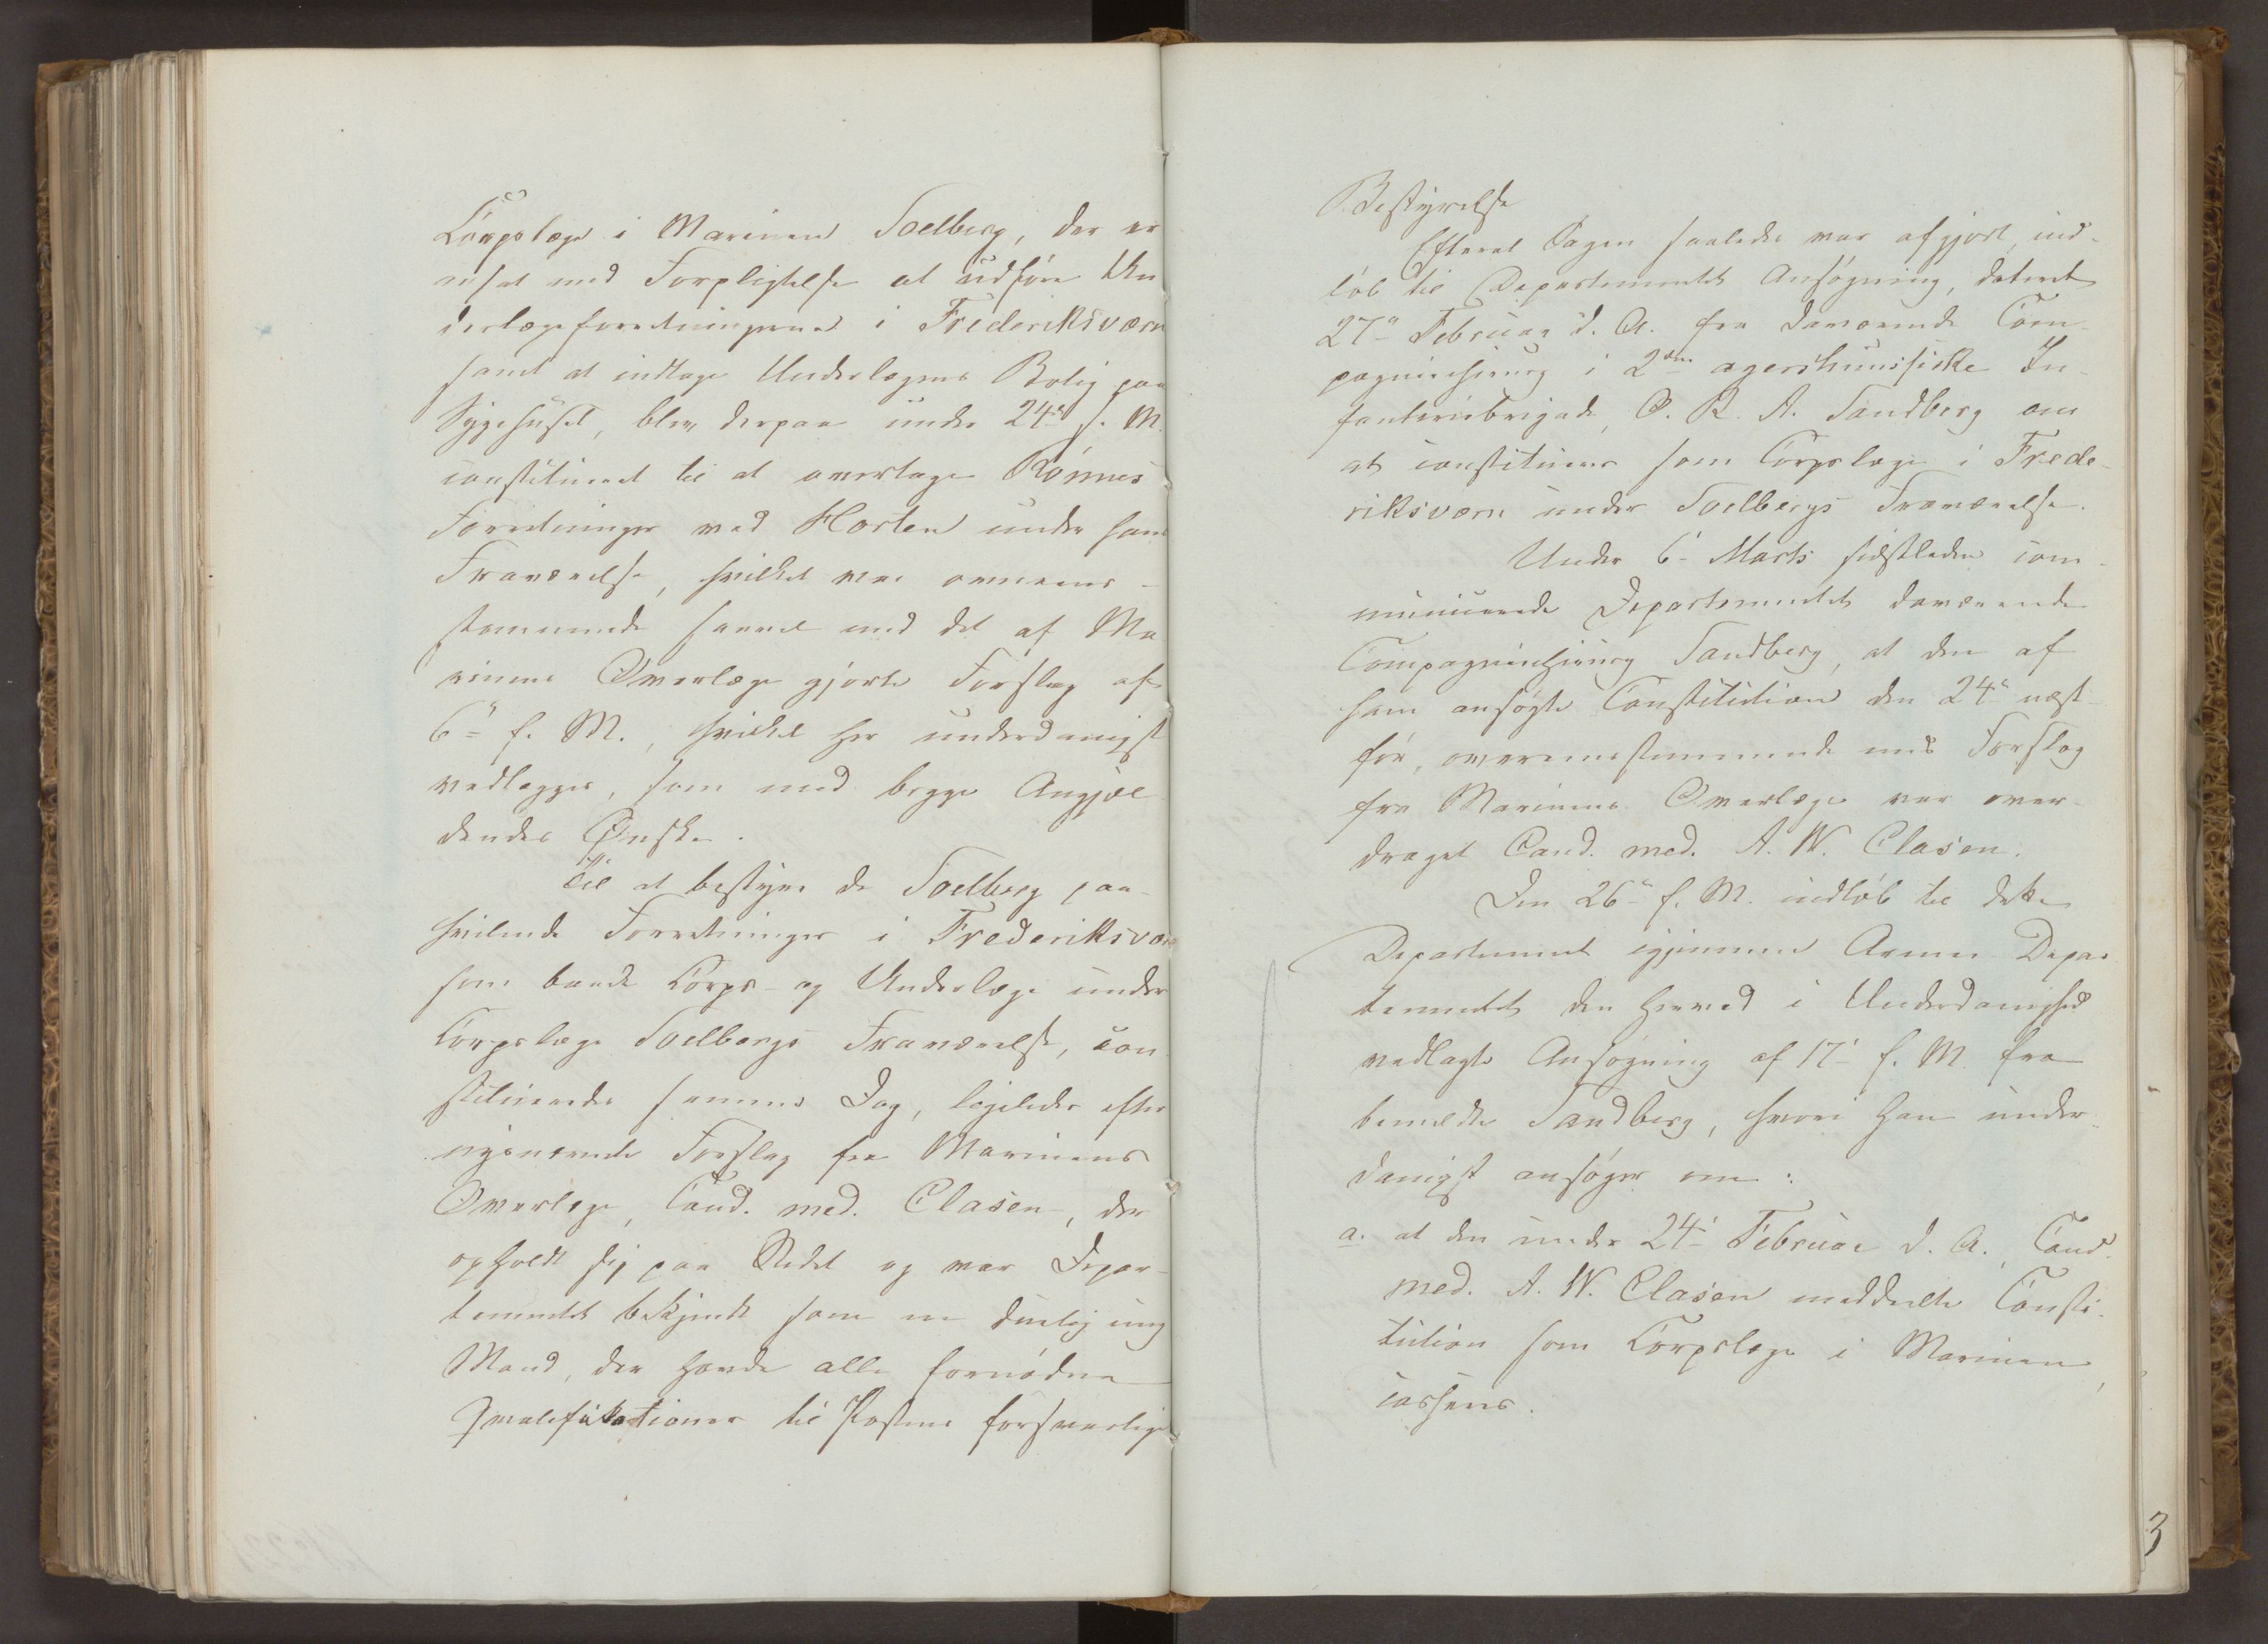 Corpslæge i Marinen Soelberg, der er
ansat med Forpligtelse at udføre Un
derlægeforretningerne i Frederiksværn
samt at indtage Underlægens Bolig paa
Sygehuset, blev derpaa under 24de f. M.
constitueret til at overtage Rønnes
Forretninger ved Horten under hans
Fraværelse, hvilket var overeens-
stemmende saavel med det af Ma
rinens Overlæge gjorte Forslag af
6te f. M., hvilket her underdanigst
vedlægges, som med begge Angjæl
dendes Ønske.
Til at bestyre de Soelberg paa-
hvilende Forretninger i Frederiksværn
som baade Corps- og Underlæge under
Corpslæge Soelbergs Fraværelse, con
stitueredes samme Dag, ligeledes efter
nysnævnte Forslag fra Marinens
Overlæge, Cand. med. Clasen, der
opholdt sig paa Stedet og var Depar-
tementet bekjendt som en duelig ung
Mand, der havde alle fornødne
Qvalifikationer til Postens forsvarlige
Bestyrelse
Efterat Sagen saaledes var afgjort, ind-
løb til Departementet Ansøgning, dateret
27de Februar d. A. fra daværende Com-
pagniechirurg i 2den agershuusiske In-
fanteriebrigade, O. R. A. Sandberg om
at constitueres som Corpslæge i Frede-
riksværn under Soelbergs Fraværelse.
Under 6te Marts sidstleden com-
municerede Departementet daværende
Compagniechirurg Sandberg, at den af
ham ansøgte Constitution den 24de næst-
før, overensstemmende med Forslag
fra Marinens Overlæge var over-
draget Cand. med. A. W. Clasen.
Den 26de f. M. indløb til dette
Departement igjennem Armee-Depar
tementet den herved i Underdanighed
vedlagte Ansøgning af 17de f. M. fra
bemeldte Sandberg, hvori han under-
danigst ansøger om:
a. at den under 24de Februar d. A., Cand.
med. A. W. Clasen meddeelte Consti-
tution som Corpslæge i Marinen,
casseres.
3